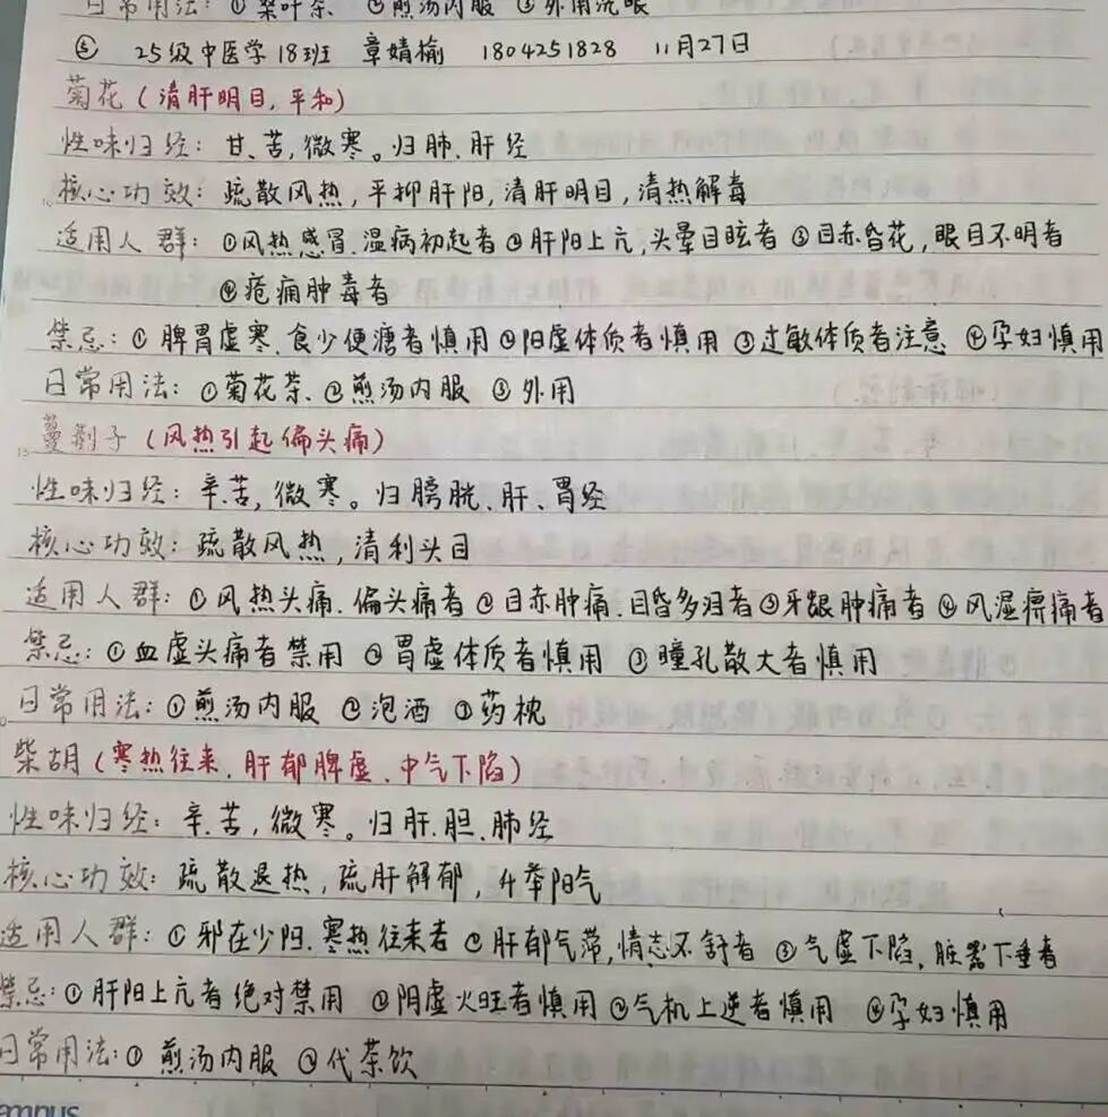 日常用法：①桑叶茶、②煎汤内服 ③外用洗眼
⑤ 25级中医学18班 章婧榆 1804251828 11月27日
菊花（清肝明目，平和）
性味归经：甘、苦，微寒。归肺、肝经
核心功效：疏散风热，平抑肝阳，清肝明目，清热解毒
适用人群：①风热感冒、温病初起者②肝阳上亢，头晕目眩者③目赤昏花，眼目不明者
④疮痈肿毒者
禁忌：①脾胃虚寒、食少便溏者慎用②阳虚体质者慎用③过敏体质者注意④孕妇慎用
日常用法：①菊花茶、②煎汤内服 ③外用
蔓荆子（风热引起偏头痛）
性味归经：辛、苦，微寒。归膀胱、肝、胃经
核心功效：疏散风热，清利头目
适用人群：①风热头痛、偏头痛者②目赤肿痛、目昏多泪者③牙龈肿痛者④风湿痹痛者
禁忌：①血虚头痛者禁用②胃虚体质者慎用③瞳孔散大者慎用
日常用法：①煎汤内服②泡酒③药枕
柴胡（寒热往来、肝郁脾虚、中气下陷）
性味归经：辛、苦，微寒。归肝、胆、肺经
核心功效：疏散退热，疏肝解郁，升举阳气
适用人群：①邪在少阳、寒热往来者②肝郁气滞，情志不舒者③气虚下陷，脏器下垂者
禁忌：①肝阳上亢者绝对禁用②阴虚火旺者慎用③气机上逆者慎用④孕妇慎用
日常用法：①煎汤内服②代茶饮